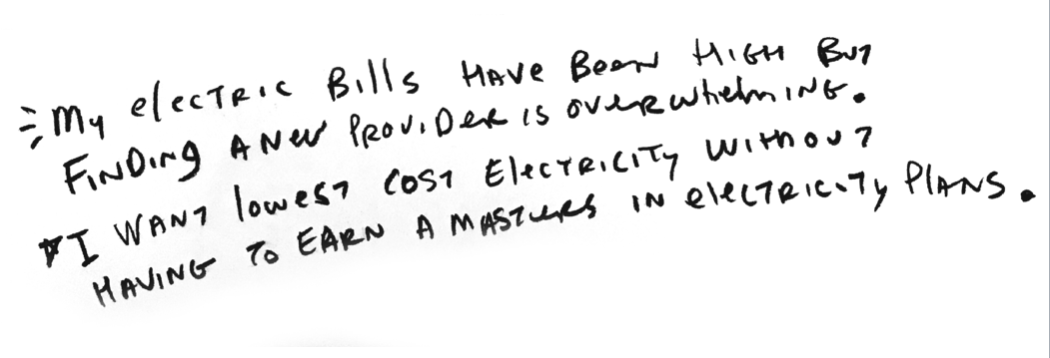 My electric Bills HAVE BeeN HIGH BuT
FINDING A New PROVIDER IS OVERWhelmING.
I WANT lowest COST ElecTRICITy WITHOUT
HAVING TO EARN A MASTERS IN electRICITy PlANS.